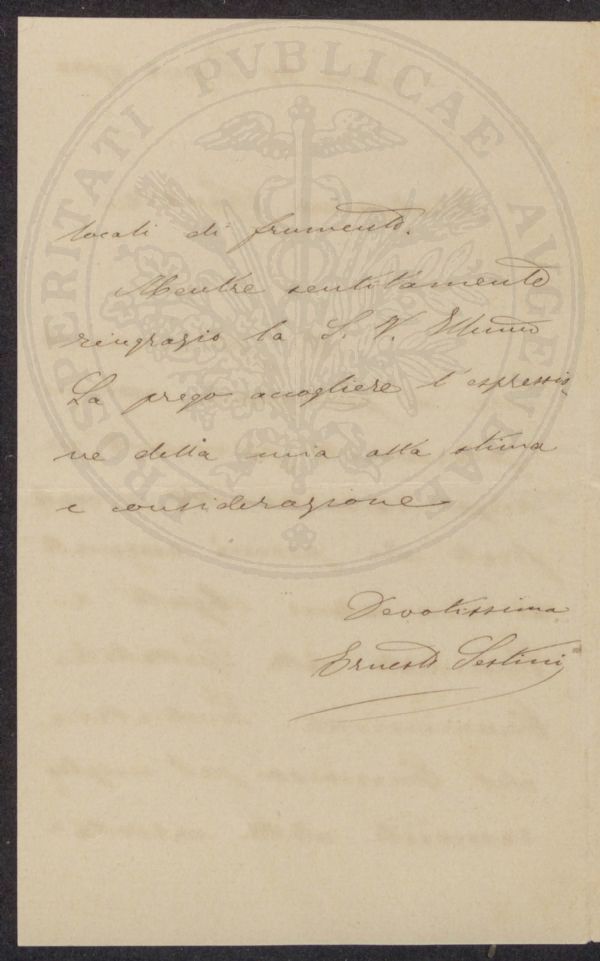 PROSPERITATI PVBLICAE AVGENDAE
locali di frumento.
Mentre sentitamente
ringrazio la S. V. Illma
La prego accogliere l'espressio-
ne della mia alta stima
e considerazione
Devotissimo
Ernesto Sestini